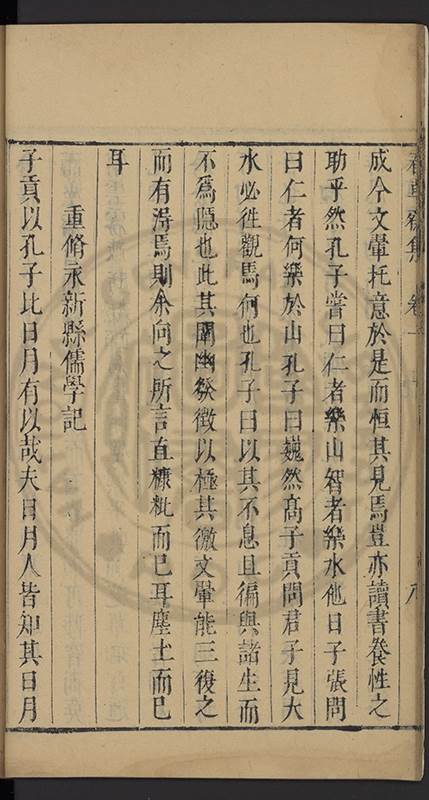 成今文暈托意於是而恒其見焉豈亦讀書養性之
助乎然孔子嘗曰仁者樂山智者樂水他日子張問
曰仁者何樂於山孔子曰巍然高子貢問君子見大
水必徃觀焉何也孔子曰以其不息且徧與諸生而
不爲隱也此其闡幽發微以極其微文暈能三復之
而有得焉則余向之所言直糠粃而已耳塵土而已
耳
重脩永新縣儒學記
子貢以孔子比日月有以哉夫日月人皆知其日月